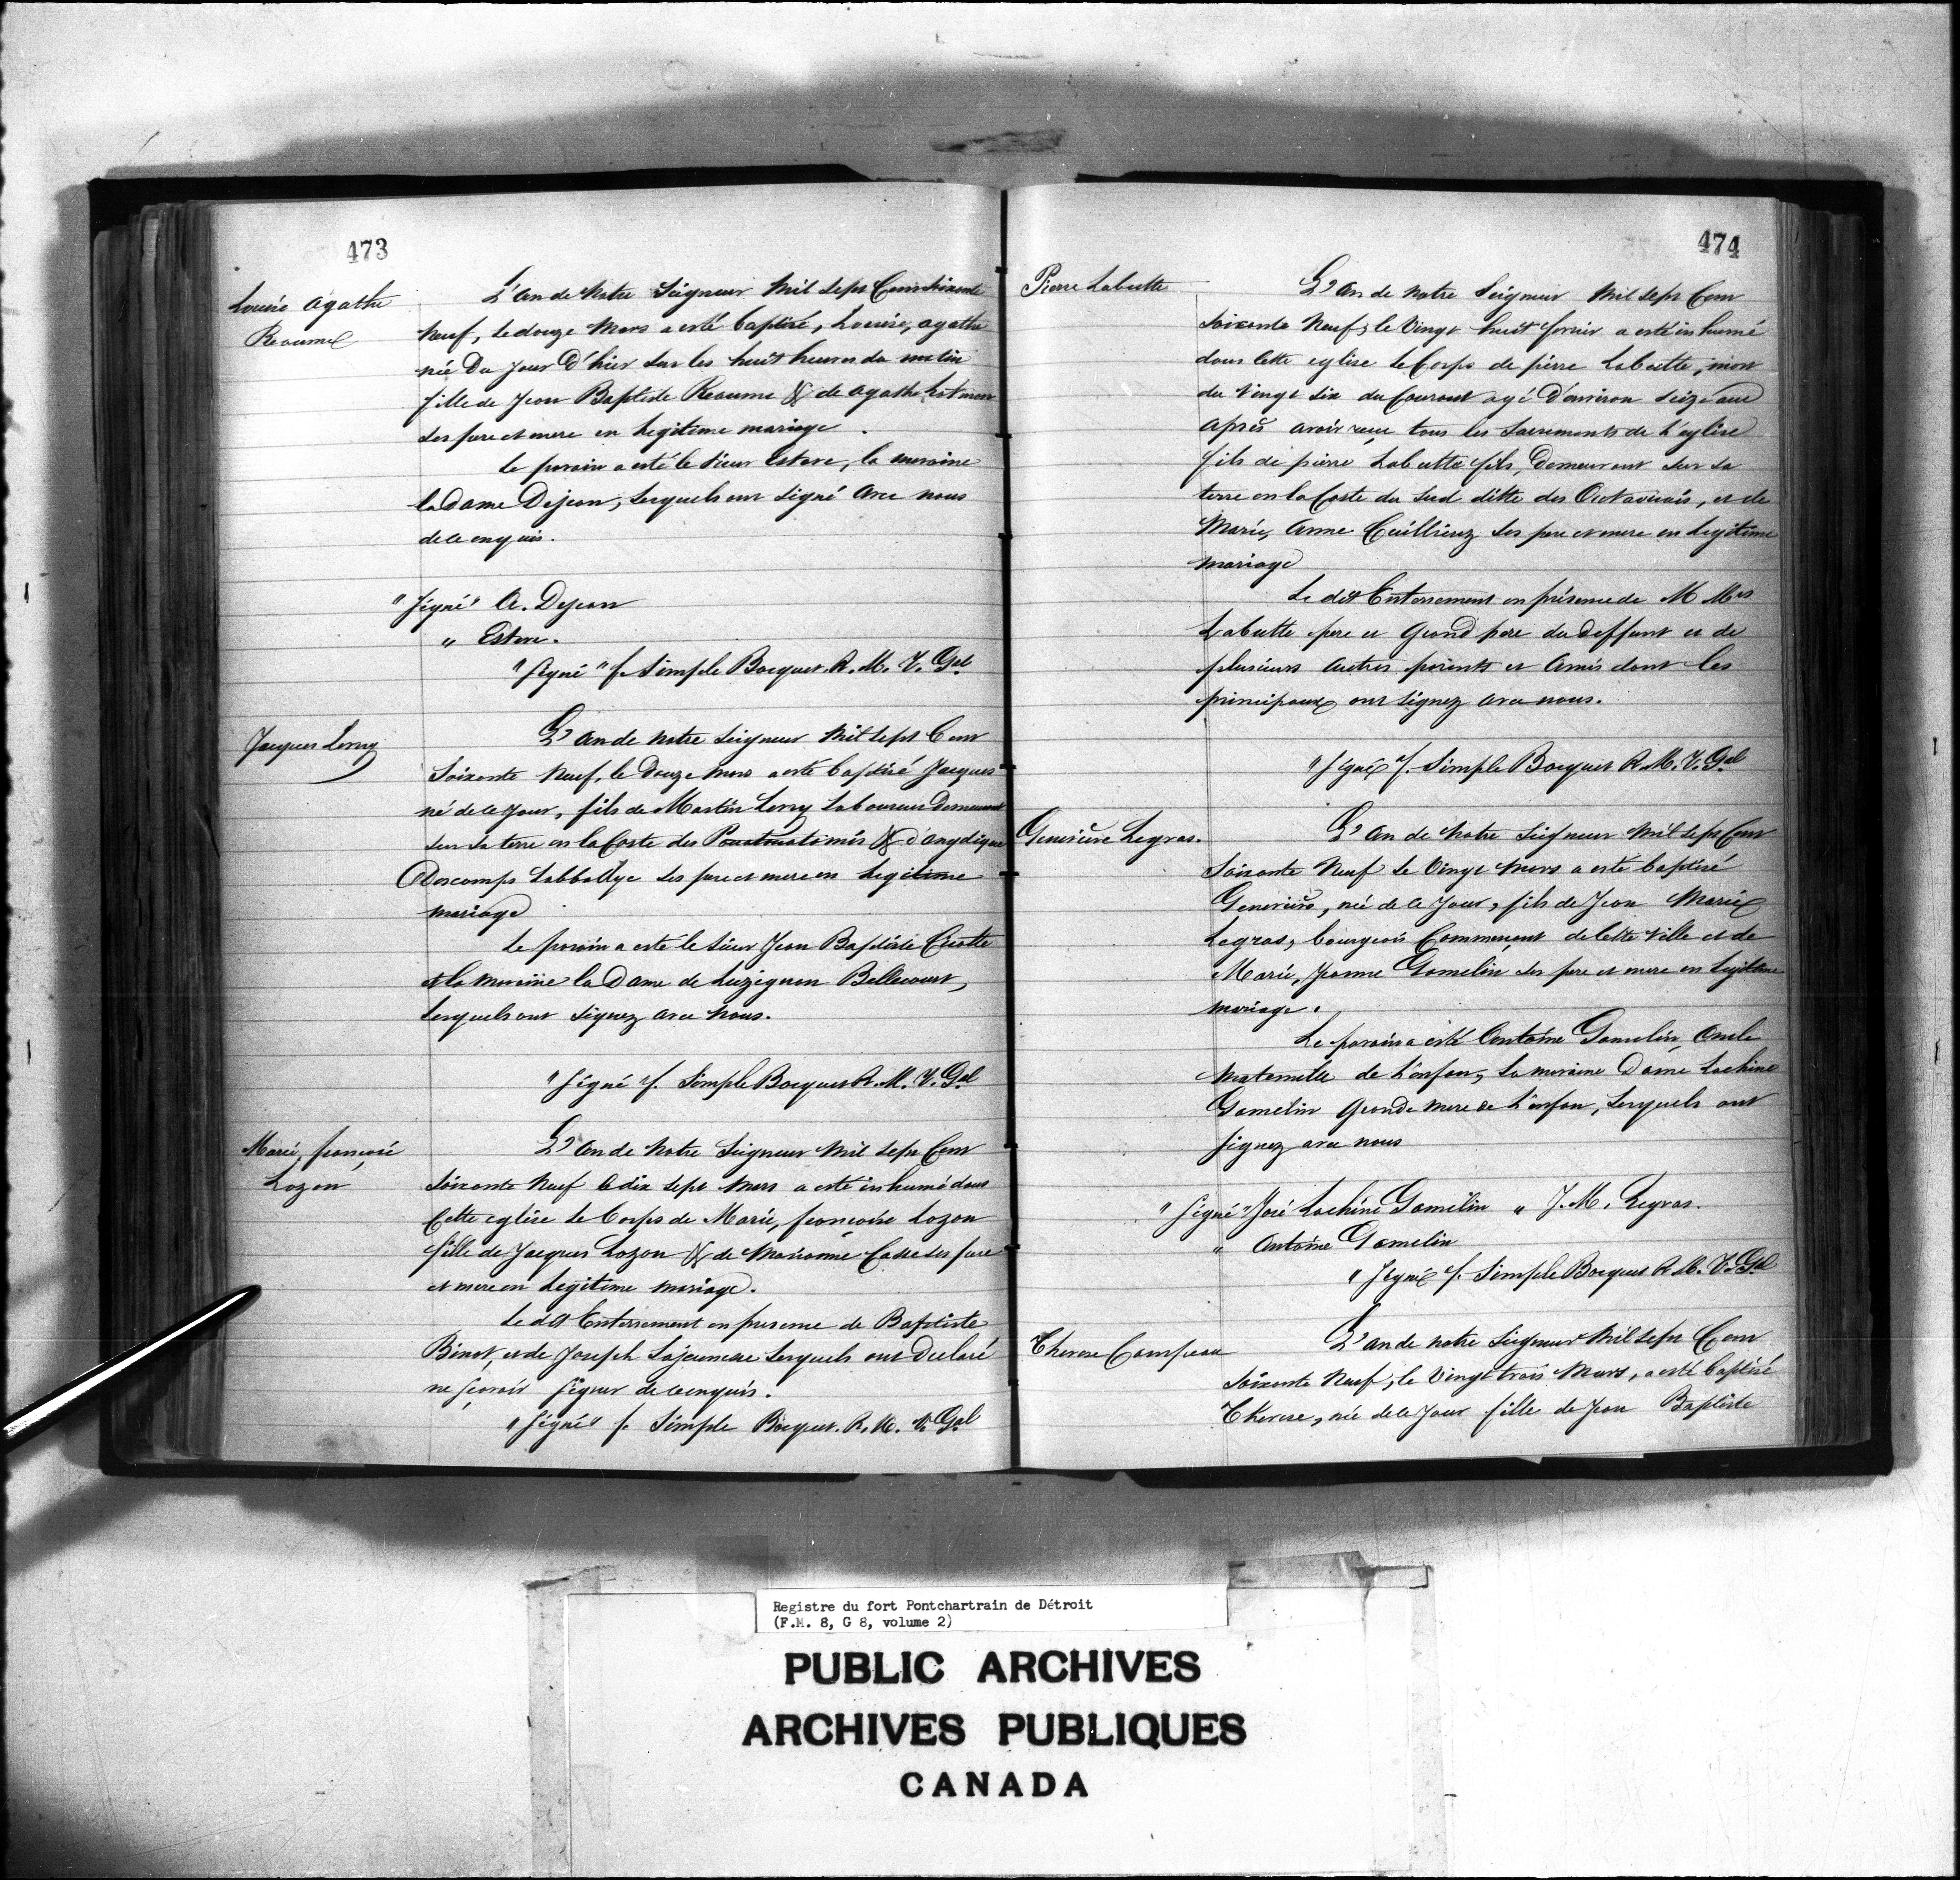 473
Louise Agathe
Reaume
L'an de Notre Seigneur Mil Sept Cent Soixante
Neuf, le douze Mars a esté baptisé, Louise, agathe
née Du jour D'hier sur les huit heures du matin
fille de Jean Baptiste Reaume & de agathe
Ses pere et mere en legitime mariage.
Le parain a esté le Sieur Esteve, la maraine
la Dame Dejean, lesquels ont signé avec nous
de ce enquis.
"Signé" A. Dejean
" Esteve.
"Signé" f. Simple Bocquet R. M. V. Gal
Jacques Levry
L'an de Notre Seigneur Mil Sept Cent
Soixante Neuf, le Douze Mars a esté baptisé Jacques
né de ce jour, fils de Martin Levry Laboureur Demeurant
sur sa terre en la Coste des Pouatouatamis & d'angélique
Descomps Labbadye ses pere et mere en Legitime
mariage
Le parain a esté le Sieur Jean Baptiste Cicotte
et la maraine la Dame de Luzignan Bellecourt,
lesquels ont signez avec Nous.
"Signé" f. Simple Bocquet R. M. V. Gal
Marie, françoise
Lozon
L'an de Notre Seigneur Mil Sept Cent
Soixante Neuf le dix Sept Mars a esté inhumé dans
Cette eglise le Corps de Marie, françoise Lozon
fille de Jacques Lozon & de Marianne Casse ses pere
et mere en Legitime mariage.
Le dit Enterrement en presence de Baptiste
Binot, et de Joseph Lajeunesse lesquels ont Declaré
ne sçavoir signer de ce enquis.
"Signé" f. Simple Bocquet. R. M. V. Gal
474
Pierre Labutte
L'an de Notre Seigneur Mil Sept Cent
Soixante Neuf, le Vingt huit fevrier a esté inhumé
dans Cette eglise le Corps de pierre Labutte, mort
du Vingt Six du Courant agé D'environ Seize ans
Après avoir reçu tous les Sacrements de L'eglise
fils de pierre Labutte fils, Demeurant sur sa
terre en la Coste du Sud ditte des Outavuais, et de
Marie, Anne Cuillieriez ses pere et mere en Legitime
mariage
Le dit Enterrement en présence de M Mrs
Labutte pere et Grand pere du deffunt et de
plusieurs Autres parents et Amis dont les
principaux ont signez avec nous.
"Signé" f. Simple Bocquet R. M. V. Gal
Genevieve Legras.
L'an de Notre Seigneur Mil Sept Cent
Soixante Neuf le Vingt Mars a esté baptisé
Genevieve, née de ce jour, fils de Jean Marie
Legras, bourgeois Commerçant de Cette Ville et de
Marie, Jeanne Gamelin ses pere et mere en Legitime
mariage.
Le parain a esté Antoine Gamelin Oncle
Maternelle de L'enfan, la maraine Dame Lachine
Gamelin Grande Mere de L'enfan, lesquels ont
signez avec nous
"Signé" José Lachine Gamelin " J. M. Legras.
" Antoine Gamelin
"Signé" f. Simple Bocquet R. M. V. Gal
Therese Campeau
L'an de Notre Seigneur Mil Sept Cent
Soixante Neuf, le Vingt trois Mars, a esté baptisé
Therese, née de ce Jour fille de Jean Baptiste
Registre du fort Pontchartrain de Détroit
(F.M. 8, G 8, volume 2)
PUBLIC ARCHIVES
ARCHIVES PUBLIQUES
CANADA